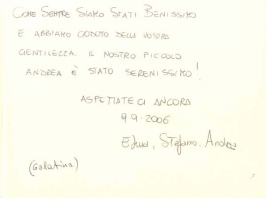 COME SEMPRE SIAMO STATI BENISSIMO
E ABBIAMO GODUTO DELLA VOSTRA
GENTILEZZA. IL NOSTRO PICCOLO
ANDREA È STATO SERENISSIMO!
ASPETTATECI ANCORA
9-9-2006
Stefano, Andrea
(Galatina)